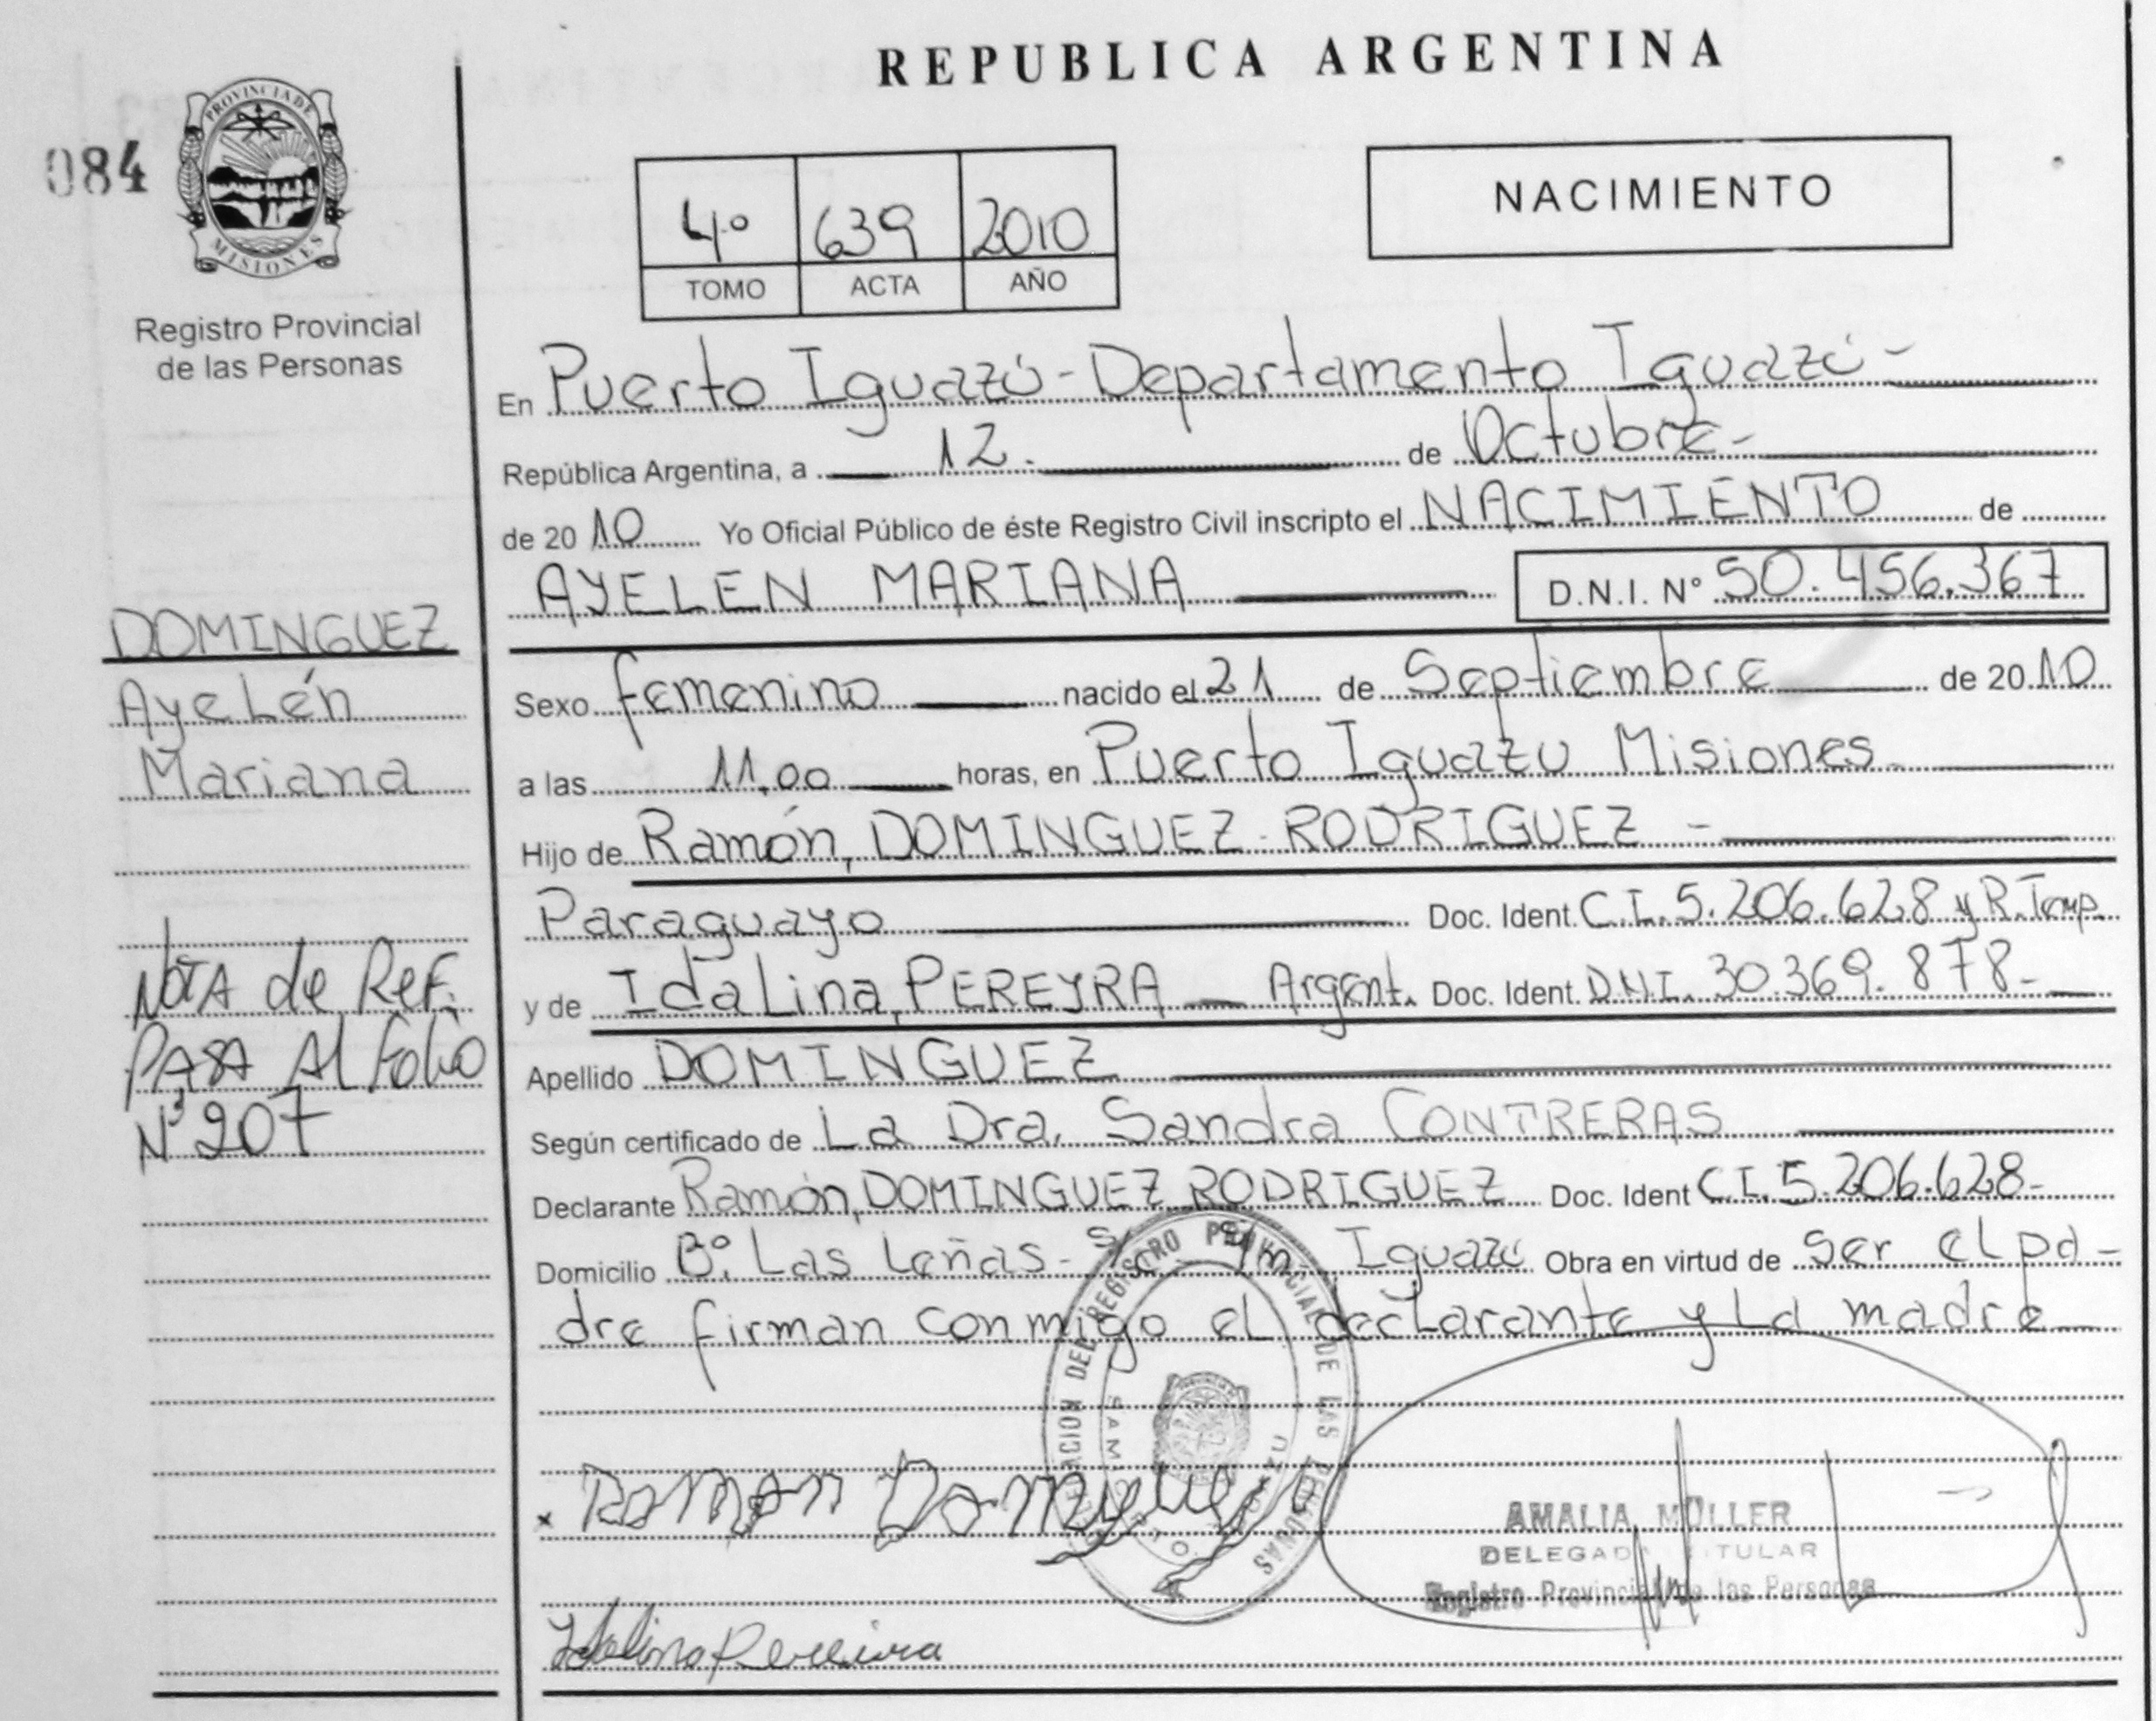 REPUBLICA ARGENTINA
084
PROVINCIA DE
MISIONES
Registro Provincial
de las Personas
4º 639 2010
TOMO ACTA AÑO
NACIMIENTO
En Puerto Iguazú - Departamento Iguazú -
República Argentina, a 12. de Octubre -
de 2010 Yo Oficial Público de éste Registro Civil inscripto el NACIMIENTO de
AYELEN MARIANA D.N.I. Nº 50.456.367
DOMINGUEZ
Ayelén
Mariana
Sexo femenino nacido el 21 de Septiembre de 2010
a las 11,00 horas, en Puerto Iguazu Misiones
Hijo de Ramón, DOMINGUEZ RODRIGUEZ -
Paraguayo Doc. Ident. C.I. 5.206.628 y R. Temp.
y de Idalina, PEREYRA Argent. Doc. Ident. D.N.I. 30.369.878 -
NOTA de REF.
PASA Al Folio
Nº 207
Apellido DOMINGUEZ
Según certificado de La Dra. Sandra CONTRERAS
Declarante Ramón, DOMINGUEZ RODRIGUEZ Doc. Ident C.I. 5.206.628 -
Domicilio Bº. Las Leñas - Iguazú Obra en virtud de ser el pa-
dre firman conmigo el declarante y la madre
DEL REGISTRO PROVINCIAL DE LAS PERSONAS
Ramon Dominguez
AMALIA MÜLLER
DELEGADA TITULAR
Registro Provincial de las Personas
Idalina Pereira